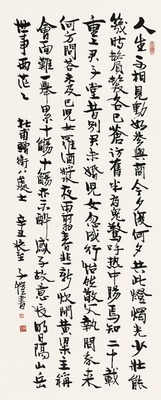 人生不相見動如參與商今夕復何夕共此燈燭光少壯能
幾時鬢髮各已蒼訪舊半為鬼驚呼熱中腸焉知二十載
重上君子堂昔別君未婚兒女忽成行怡然敬父執問我來
何方問答未及已兒女羅酒漿夜雨剪春韭新炊間黃粱主稱
會面難一舉累十觴十觴亦不醉感子故意長明日隔山岳
世事兩茫茫 杜甫贈衛八處士 辛丑 子愷書